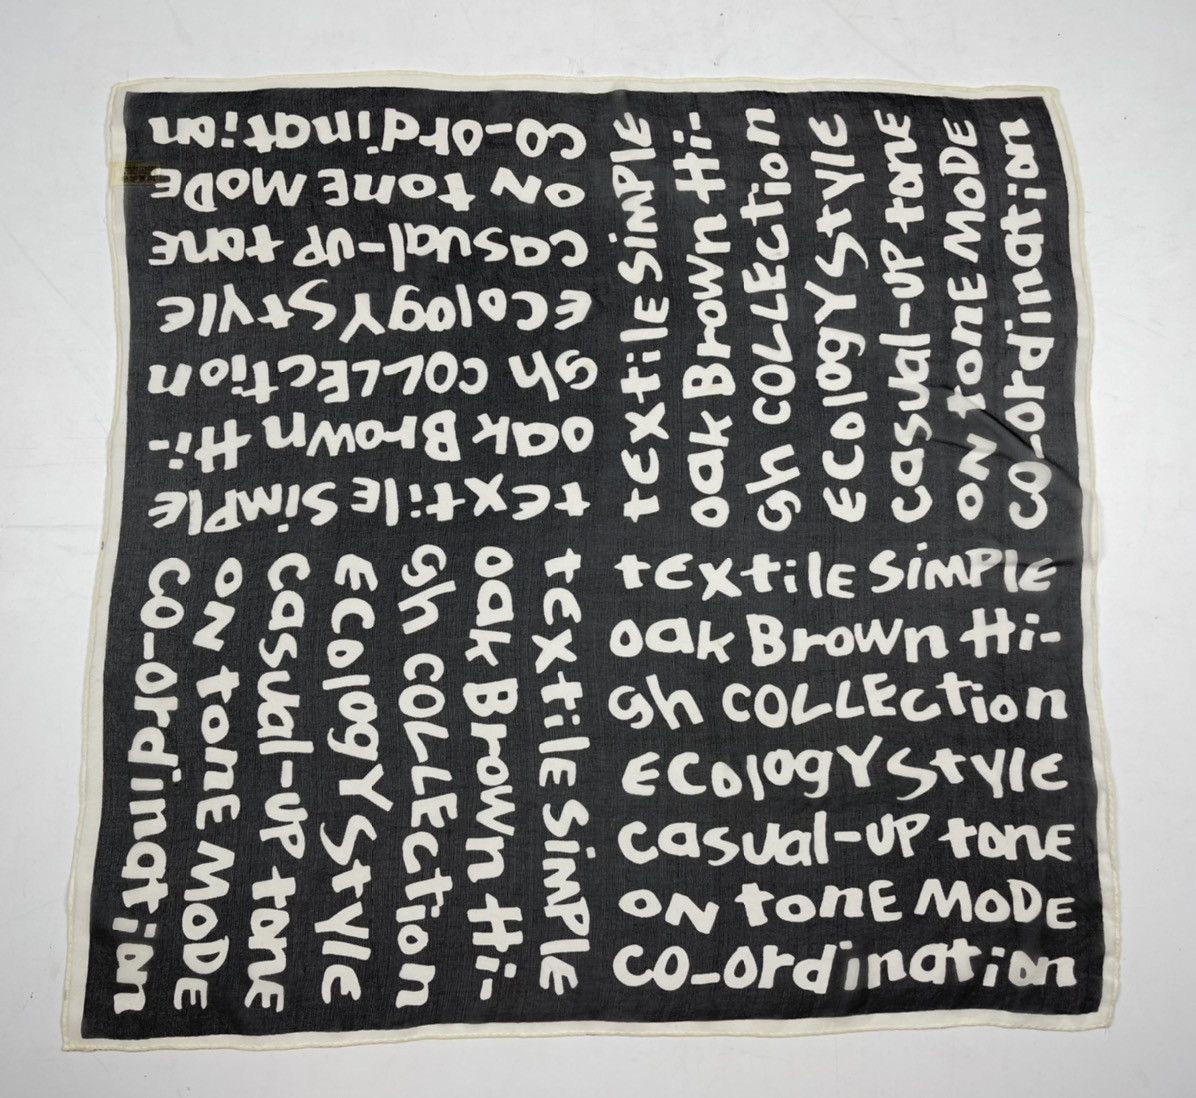 co-ordination
ON tonE MODE
casual-UP tonE
ECologY StYlE
gh COLLEction
oak Brown Hi-
tExtilE SiMPlE
tExtilE SiMPlE
oak Brown Hi-
gh COLLEction
ECologY StYlE
casual-UP tonE
ON tonE MODE
co-ordination
co-ordination
ON tonE MODE
casual-UP tonE
ECologY StYlE
gh COLLEction
oak Brown Hi-
tExtilE SiMPlE
tExtilE SiMPlE
oak Brown Hi-
gh COLLEction
ECologY StYlE
casual-UP tonE
ON tonE MODE
co-ordination